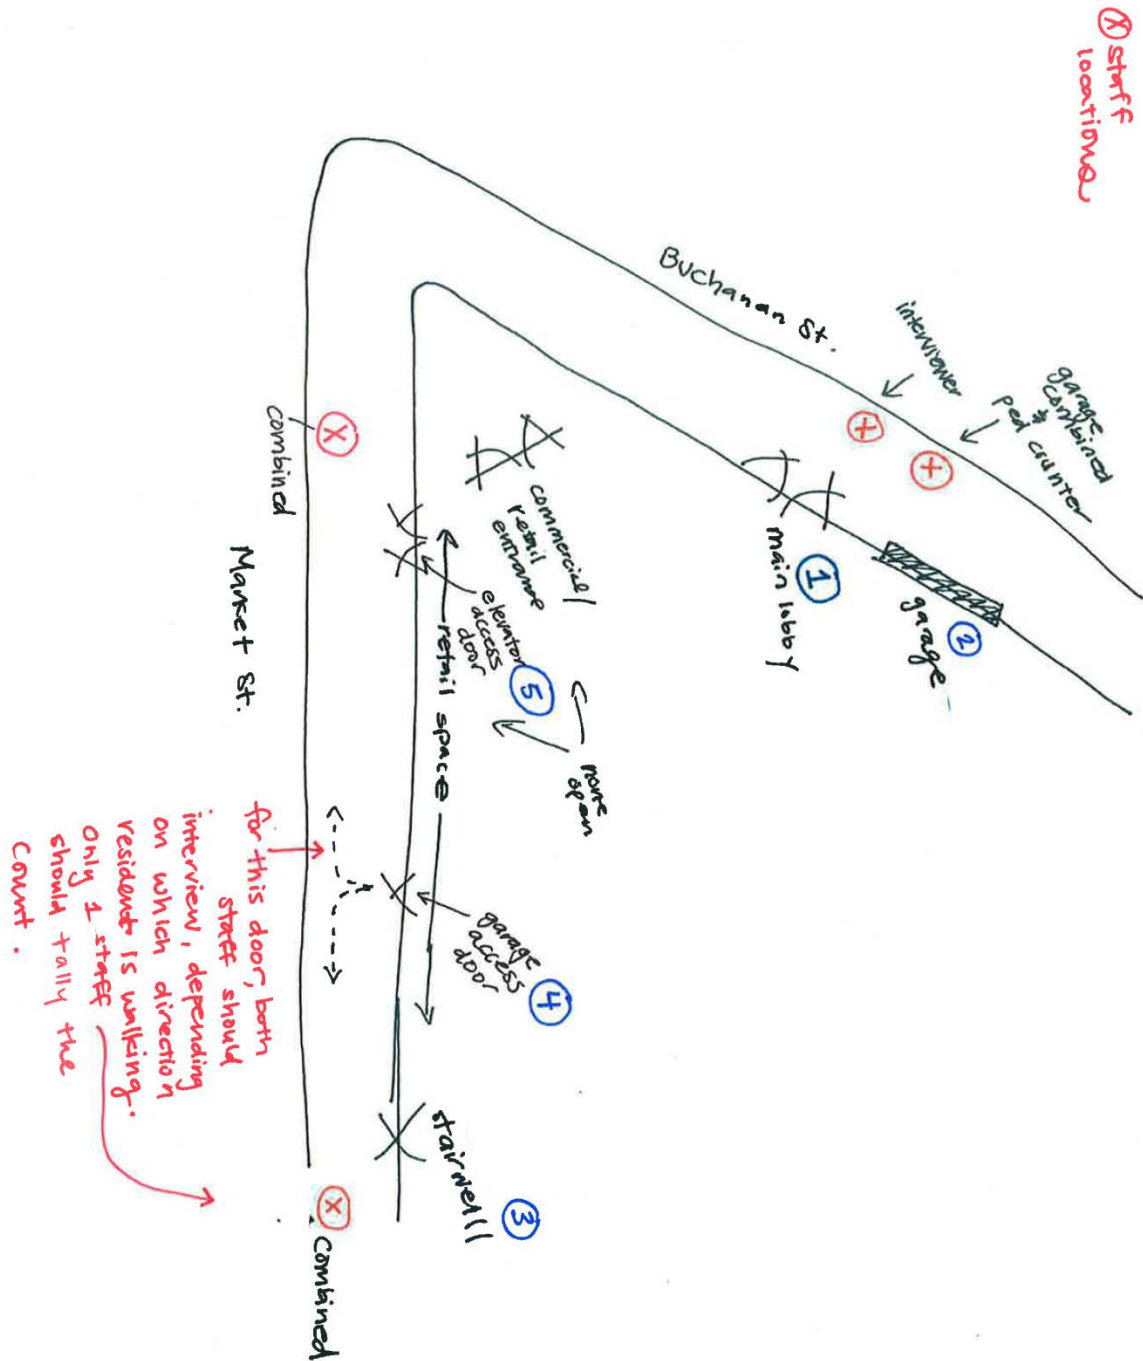 Ⓧ staff
locations
Buchanan St.
interviewer
garage
combined
&
ped counter
main lobby
①
garage
②
commercial/
retail
entrance
elevator
access
door
⑤
retail space
none
open
combined
Market St.
garage
access
door
④
stairwell
③
combined
for this door, both
staff should
interview, depending
on which direction
resident is walking.
only 1 staff
should tally the
count.